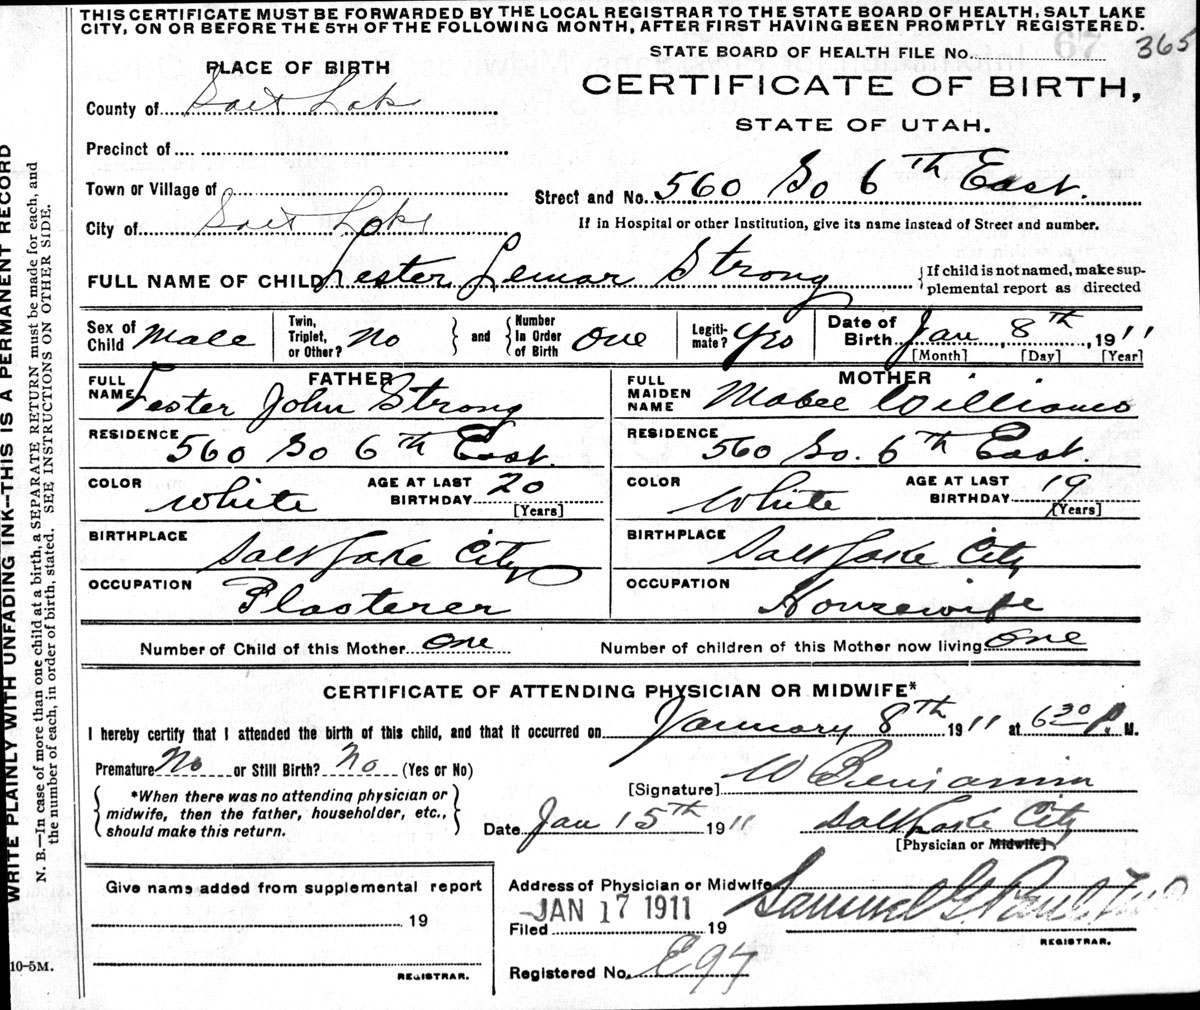 THIS CERTIFICATE MUST BE FORWARDED BY THE LOCAL REGISTRAR TO THE STATE BOARD OF HEALTH, SALT LAKE
CITY, ON OR BEFORE THE 5TH OF THE FOLLOWING MONTH, AFTER FIRST HAVING BEEN PROMPTLY REGISTERED.
365
STATE BOARD OF HEALTH FILE No. 67
PLACE OF BIRTH
CERTIFICATE OF BIRTH,
STATE OF UTAH.
County of Salt Lake
Precinct of
Town or Village of
City of Salt Lake
Street and No. 560 So 6th East.
If in Hospital or other Institution, give its name instead of Street and number.
FULL NAME OF CHILD Lester Lemar Strong
{If child is not named, make sup-
plemental report as directed
Sex of Child Male
Twin, Triplet, or Other? No } and { Number In Order of Birth One
Legiti-mate? Yes
Date of Birth Jan 8th, 1911
[Month] [Day] [Year]
FATHER
FULL NAME Lester John Strong
RESIDENCE 560 So 6th East.
COLOR White
AGE AT LAST BIRTHDAY 20
[Years]
BIRTHPLACE Salt Lake City
OCCUPATION Plasterer
MOTHER
FULL MAIDEN NAME Mabel Williams
RESIDENCE 560 So. 6th East.
COLOR White
AGE AT LAST BIRTHDAY 19
[Years]
BIRTHPLACE Salt Lake City
OCCUPATION Housewife
Number of Child of this Mother One
Number of children of this Mother now living One
CERTIFICATE OF ATTENDING PHYSICIAN OR MIDWIFE*
I hereby certify that I attended the birth of this child, and that it occurred on January 8th 1911 at 6 30 P. M.
Premature No or Still Birth? No (Yes or No)
{ *When there was no attending physician or
midwife, then the father, householder, etc.,
should make this return. }
[Signature] W Benjamin
Date Jan 15th 1911
Salt Lake City
[Physician or Midwife]
Give name added from supplemental report
19
REGISTRAR.
Address of Physician or Midwife
Filed JAN 17 1911 19
Samuel G Paul
REGISTRAR.
Registered No. E97
WRITE PLAINLY WITH UNFADING INK--THIS IS A PERMANENT RECORD
N. B.--In case of more than one child at a birth, a SEPARATE RETURN must be made for each, and
the number of each, in order of birth, stated. SEE INSTRUCTION ON OTHER SIDE.
10-5M.